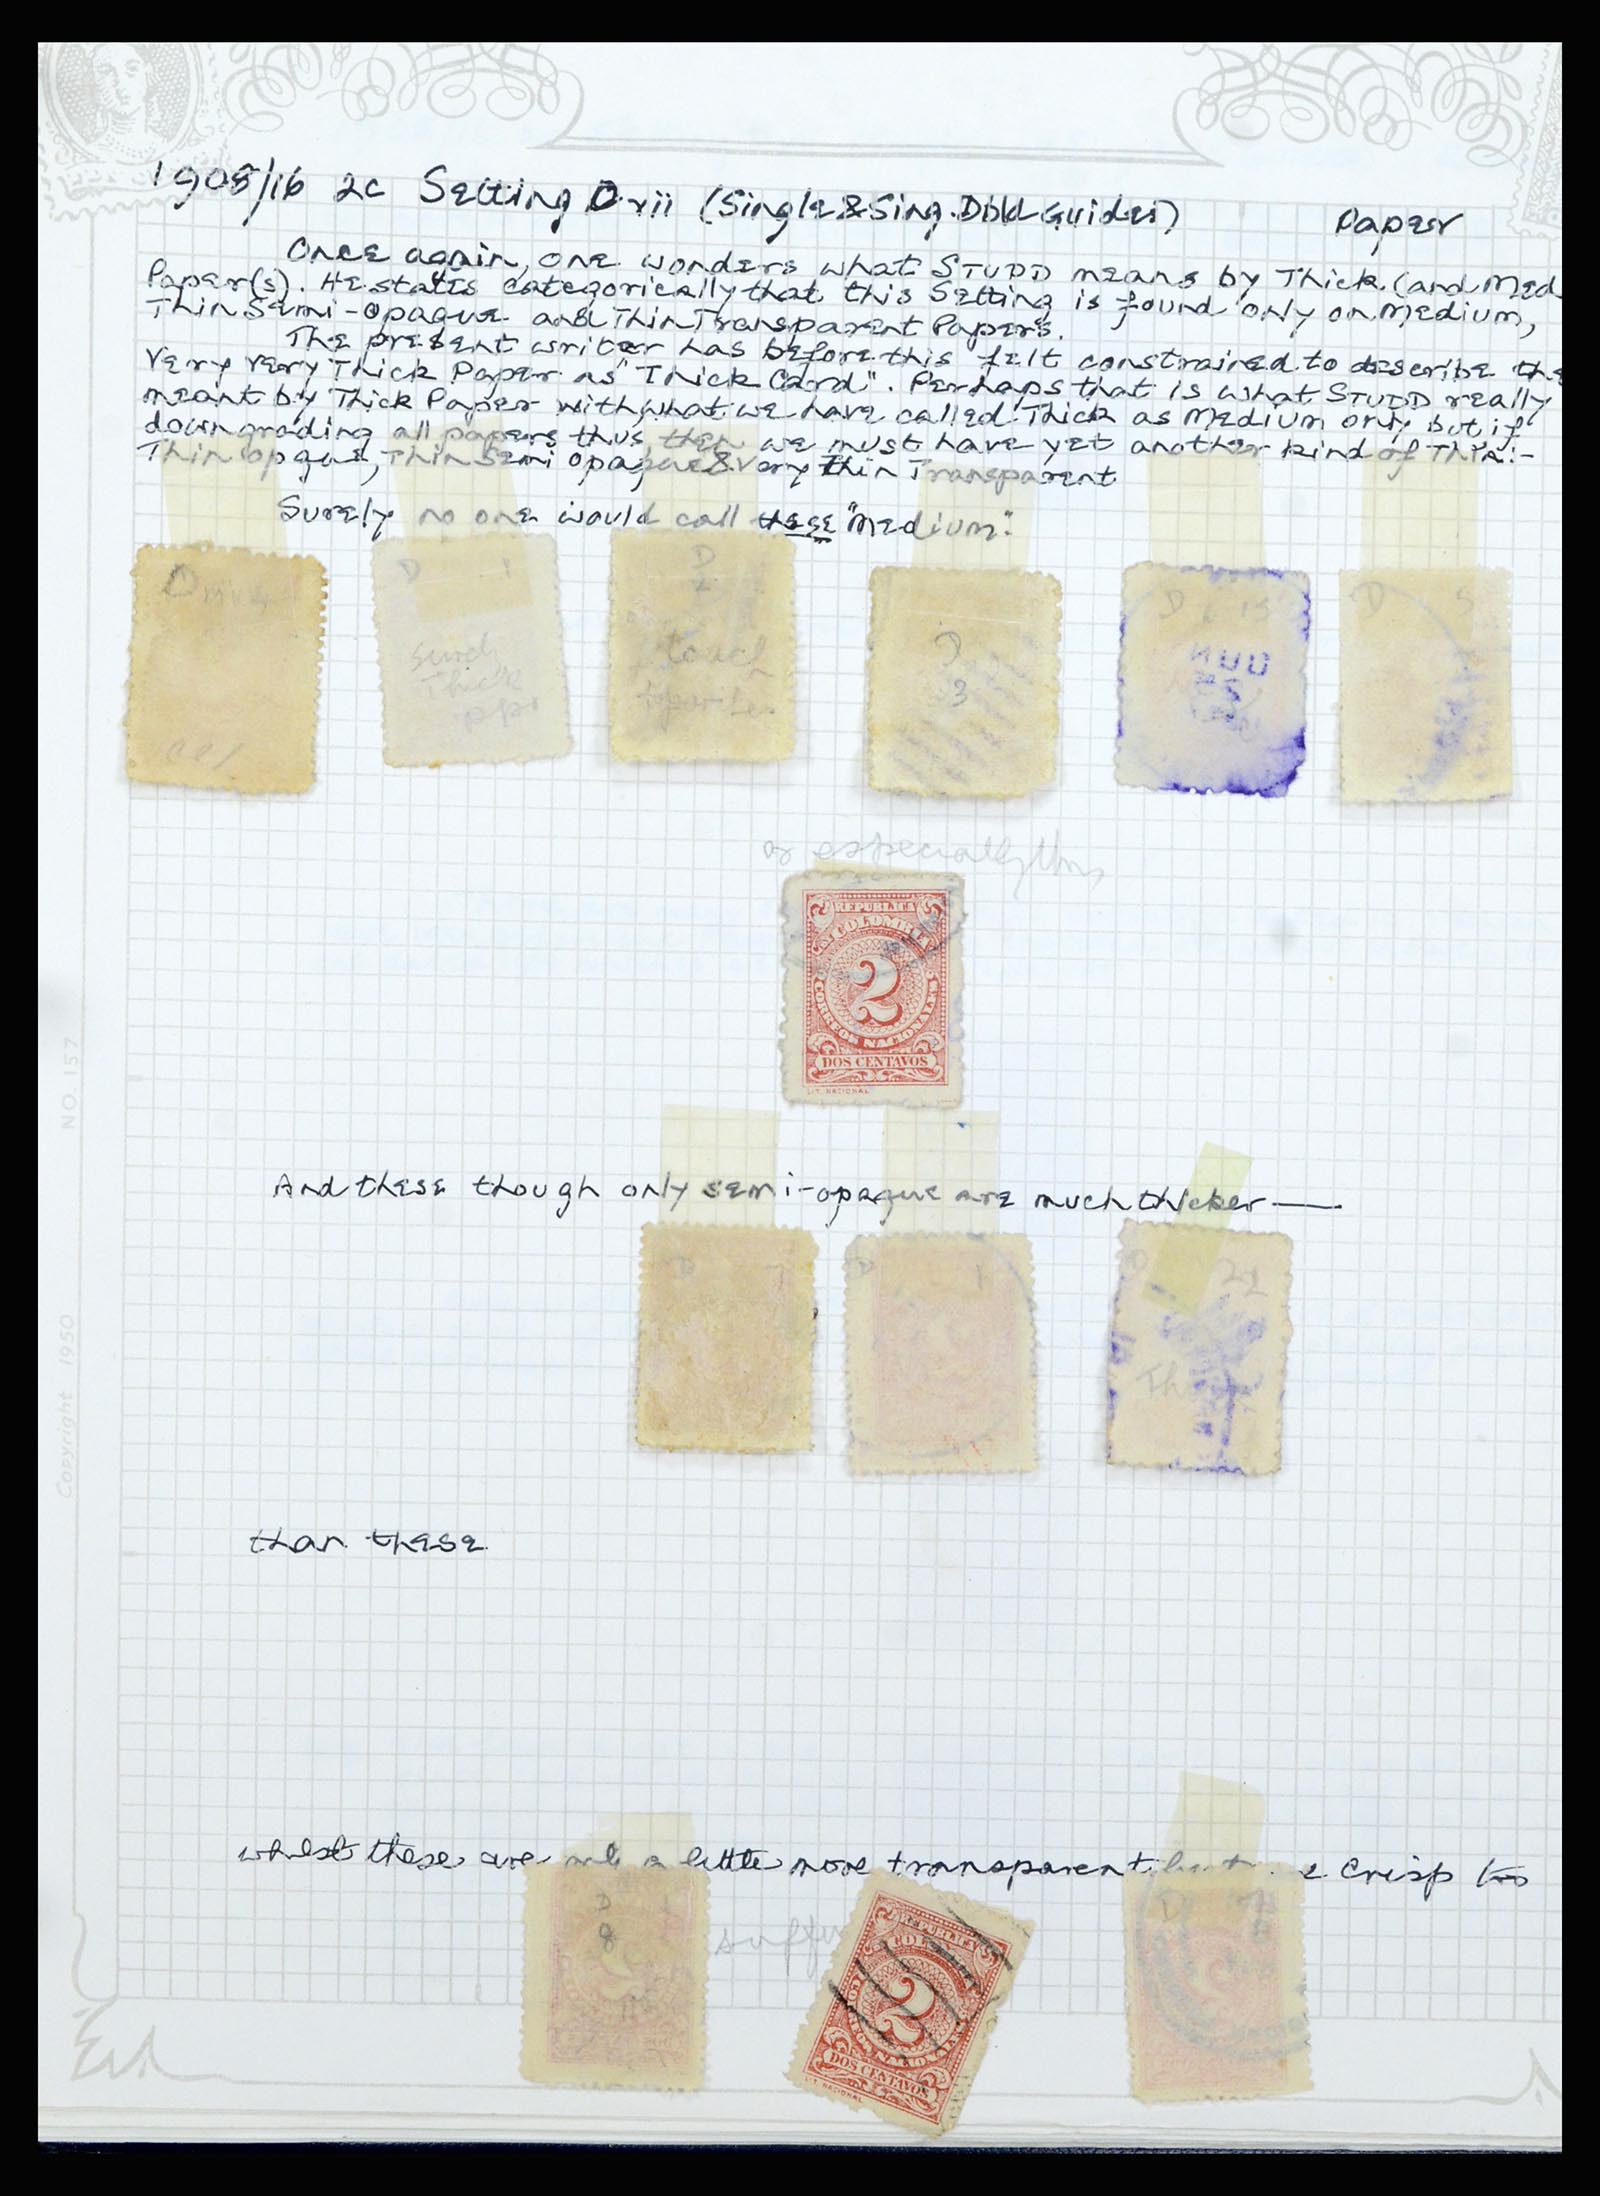 1908/16 2c Setting D.xii (Single & Sing. Dbld Guides) Paper
Once again, one wonders what STUDD means by Thick (and Med
Paper(s). He states categorically that this Setting is found only on Medium,
Thin Semi-opaque and Thin Transparent Papers.
The present writer has before this felt constrained to describe the
very very Thick Paper as "Thick Card". Perhaps that is what STUDD really
meant by Thick Paper with what we have called Thick as Medium only but if
downgrading all papers thus, then we must have yet another kind of Thin:-
Thin opque, Thin Semi opaque & Very Thin Transparent
Surely no one would call these "Medium".
D
D 1
surely
Thick
ppr
D
2
touch
D
3
D 15
D 5
or especially this
REPUBLICA
COLOMBIA
2
CORREOS NACIONALES
DOS CENTAVOS
LIT. NACIONAL
NO. 157
And these though only semi-opaque are much thicker —
D 7
D 1
D 22
Th
than these
Copyright 1950
whilst these are a little more transparent crisp too
D
8
REPUBLICA
2
DOS CENTAVOS
LIT. NACIONAL
D